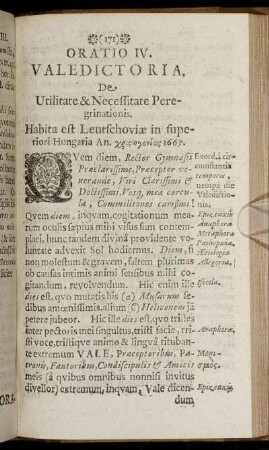 (171)
ORATIO IV.
VALEDICTORIA,
De
Utilitate & Necessitate Peregrinationis.
Habita est Leutschoviæ in superiori Hungaria An. 1667.
QVem diem, Rector Gymnasii
Præclarissime, Præceptor venerannde, Viri Clarissimi &
Doctissimi, Vosq, mea corcula, Commilitones carissimi!
Qvem diem, inqvam, cogitationum mearum oculis sæpius mihi visus sum contemplari, hunc tandem divinâ providente voluntate advexit Sol hodiernus. Diem, si
non molestum & gravem, saltem plurimas
ob causas intimis animi sensibus mihi cogitandum, revolvendum. Hic enim ille
dies est, qvo mutatis his (a) Musarum sedibus amœnissimis, alium Heliconem jà
petere jubeor. Hic ille dies est, qvo tristes
inter pectoris mei singultus, tristi facie, tristi voce, tristiqve animo & lingvâ titubante extremum VALE, Præceptoribus, Patronis, Fautoribus, Condiscipulis & Amicis
meis (â qvibus omnibus nonnisi invitus
divellor) extremum, inqvam, Vale dicendum
Exord. â circumstantia
temporis,
nempe die
Valedictionis,
Epizeuxis
Anaphora
Metaphora
Pathopœia,
Ætiologia
Allegorica.
Sicula.
Anaphora,
Epizeuxis